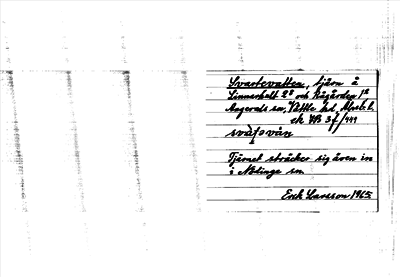 Svartevatten, tjärn å
Linnerhult 2² och Rågården 1²
Angereds sn, Vättle hd, Älvsb. l.
ek 7B 3f/444
svàṭovàn
Tjärnet sträcker sig även in
i Nödinge sn
Erik Larsson 1965